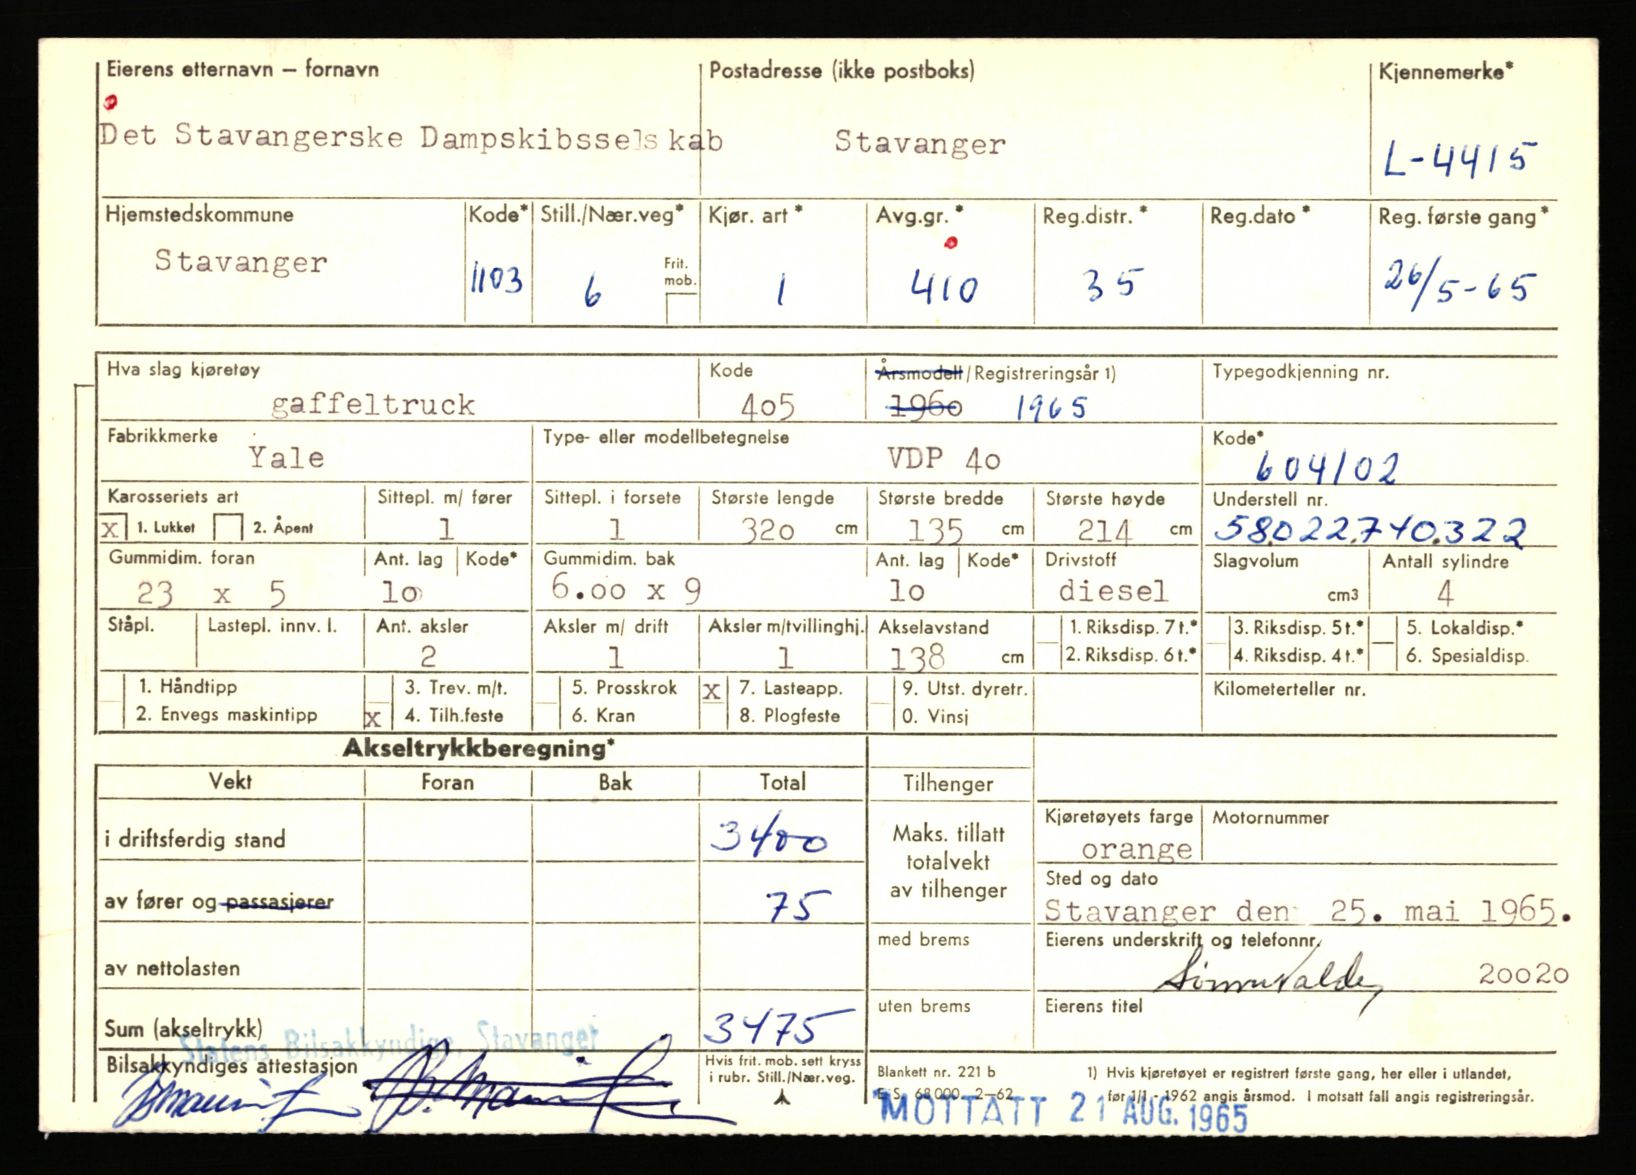 Eierens etternavn – fornavn Postadresse (ikke postboks) Kjennemerke*
Det Stavangerske Dampskibsselskab Stavanger L-4415
Hjemstedskommune Kode* Still./Nær.veg* Kjør. art * Avg.gr. * Reg.distr. * Reg.dato * Reg. første gang *
Stavanger 1103 6 Frit. mob. 1 410 35 26/5-65
Hva slag kjøretøy Kode Årsmodell/Registreringsår 1) Typegodkjenning nr.
gaffeltruck 405 1960 1965
Fabrikkmerke Type- eller modellbetegnelse Kode*
Yale VDP 40 604102
Karosseriets art Sittepl. m/ fører Sittepl. i forsete Største lengde Største bredde Største høyde Understell nr.
x 1. Lukket 2. Åpent 1 1 320 cm 135 cm 214 cm 58.022.740.322
Gummidim. foran Ant. lag Kode* Gummidim. bak Ant. lag Kode* Drivstoff Slagvolum Antall sylindre
23 x 5 10 6.00 x 9 10 diesel cm3 4
Ståpl. Lastepl. innv. l. Ant. aksler Aksler m/ drift Aksler m/tvillinghj. Akselavstand 1. Riksdisp. 7 t.* 3. Riksdisp. 5 t.* 5. Lokaldisp.*
2 1 1 138 cm 2. Riksdisp. 6 t.* 4. Riksdisp. 4 t.* 6. Spesialdisp.
1. Håndtipp 3. Trev. m/t. 5. Prosskrok x 7. Lasteapp. 9. Utst. dyretr. Kilometerteller nr.
2. Envegs maskintipp x 4. Tilh.feste 6. Kran 8. Plogfeste 0. Vinsj
Akseltrykkberegning*
Vekt Foran Bak Total Tilhenger
i driftsferdig stand 3400 Maks. tillatt totalvekt av tilhenger
Kjøretøyets farge Motornummer
orange
av fører og passasjerer 75
Sted og dato
Stavanger den 25. mai 1965.
av nettolasten med brems
Eierens underskrift og telefonnr.
20020
Sum (akseltrykk) 3475 uten brems Eierens titel
Statens Bilsakkyndige, Stavanger
Bilsakkyndiges attestasjon Hvis frit. mob. sett kryss i rubr. Still./Nær.veg.
Blankett nr. 221 b 1) Hvis kjøretøyet er registrert første gang, her eller i utlandet,
E. S. 68 000. 2–62 før 1/1 - 1962 angis årsmod. I motsatt fall angis registreringsår.
MOTTATT 21 AUG. 1965